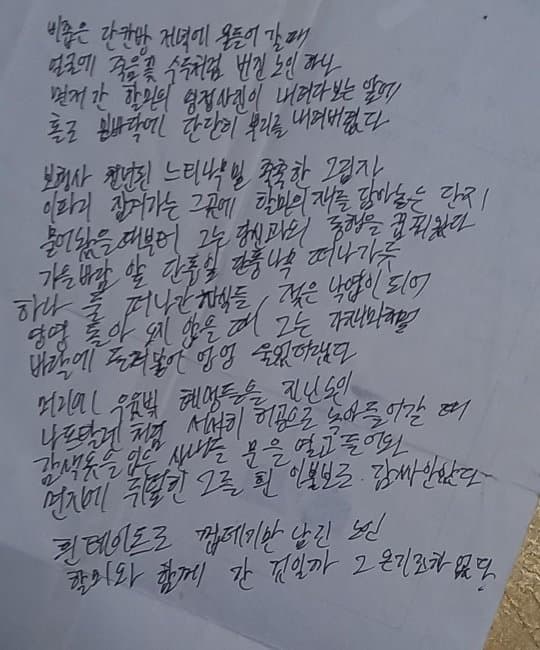 비좁은 단칸방 저녁에 옴들어 갈 때
얼굴에 죽음꽃 수유처럼 번진 노인 하나
먼저 간 할머의 영정사진이 내려다 보는 앞에
홀로 방바닥에 단단히 뿌리를 내려버렸다
보령사 천년된 느티나무 밑 축축한 그림자
이파리 잡져가는 그곳에 할머의 재를 담아놓는 단지
묻어놨을 때부터 그는 당신과의 동행을 꿈꿔왔다
가을바람 앞 단풍잎 단풍나무 떠나가듯
하나 둘 떠나간 자식들, 젖은 낙엽이 되어
영영 돌아 오지 않을 때 그는
바람에 들러붙어 엉엉 울었더랬다
머리에 우윳빛 혜성들을 지닌 노인
나프탈렌처럼 서서히 허공으로 녹아들어갈 때
감색옷을 입은 사내들 문을 열고 들어와
먼지에 뒤덮힌 그를 흰 이불보로 감싸안았다
흰 테이프로 껍데기만 남긴 노인
할머와 함께 간 것일까 그 온기조차 없다.